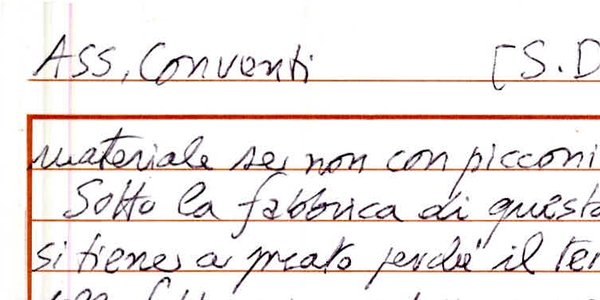 Ass. Conventi [S.D
materiale se non con picconi
Sotto la fabbrica di questa
si tiene a prato perché il ter